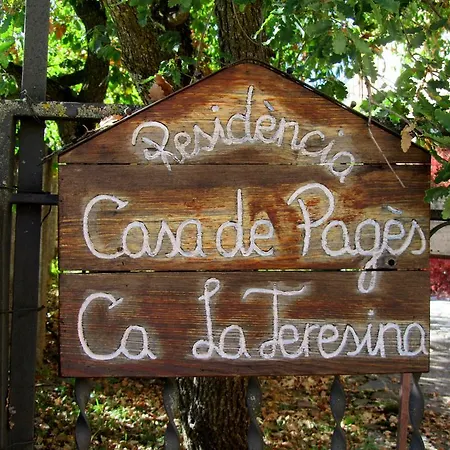 Residència
Casa de Pagès
Ca La Teresina